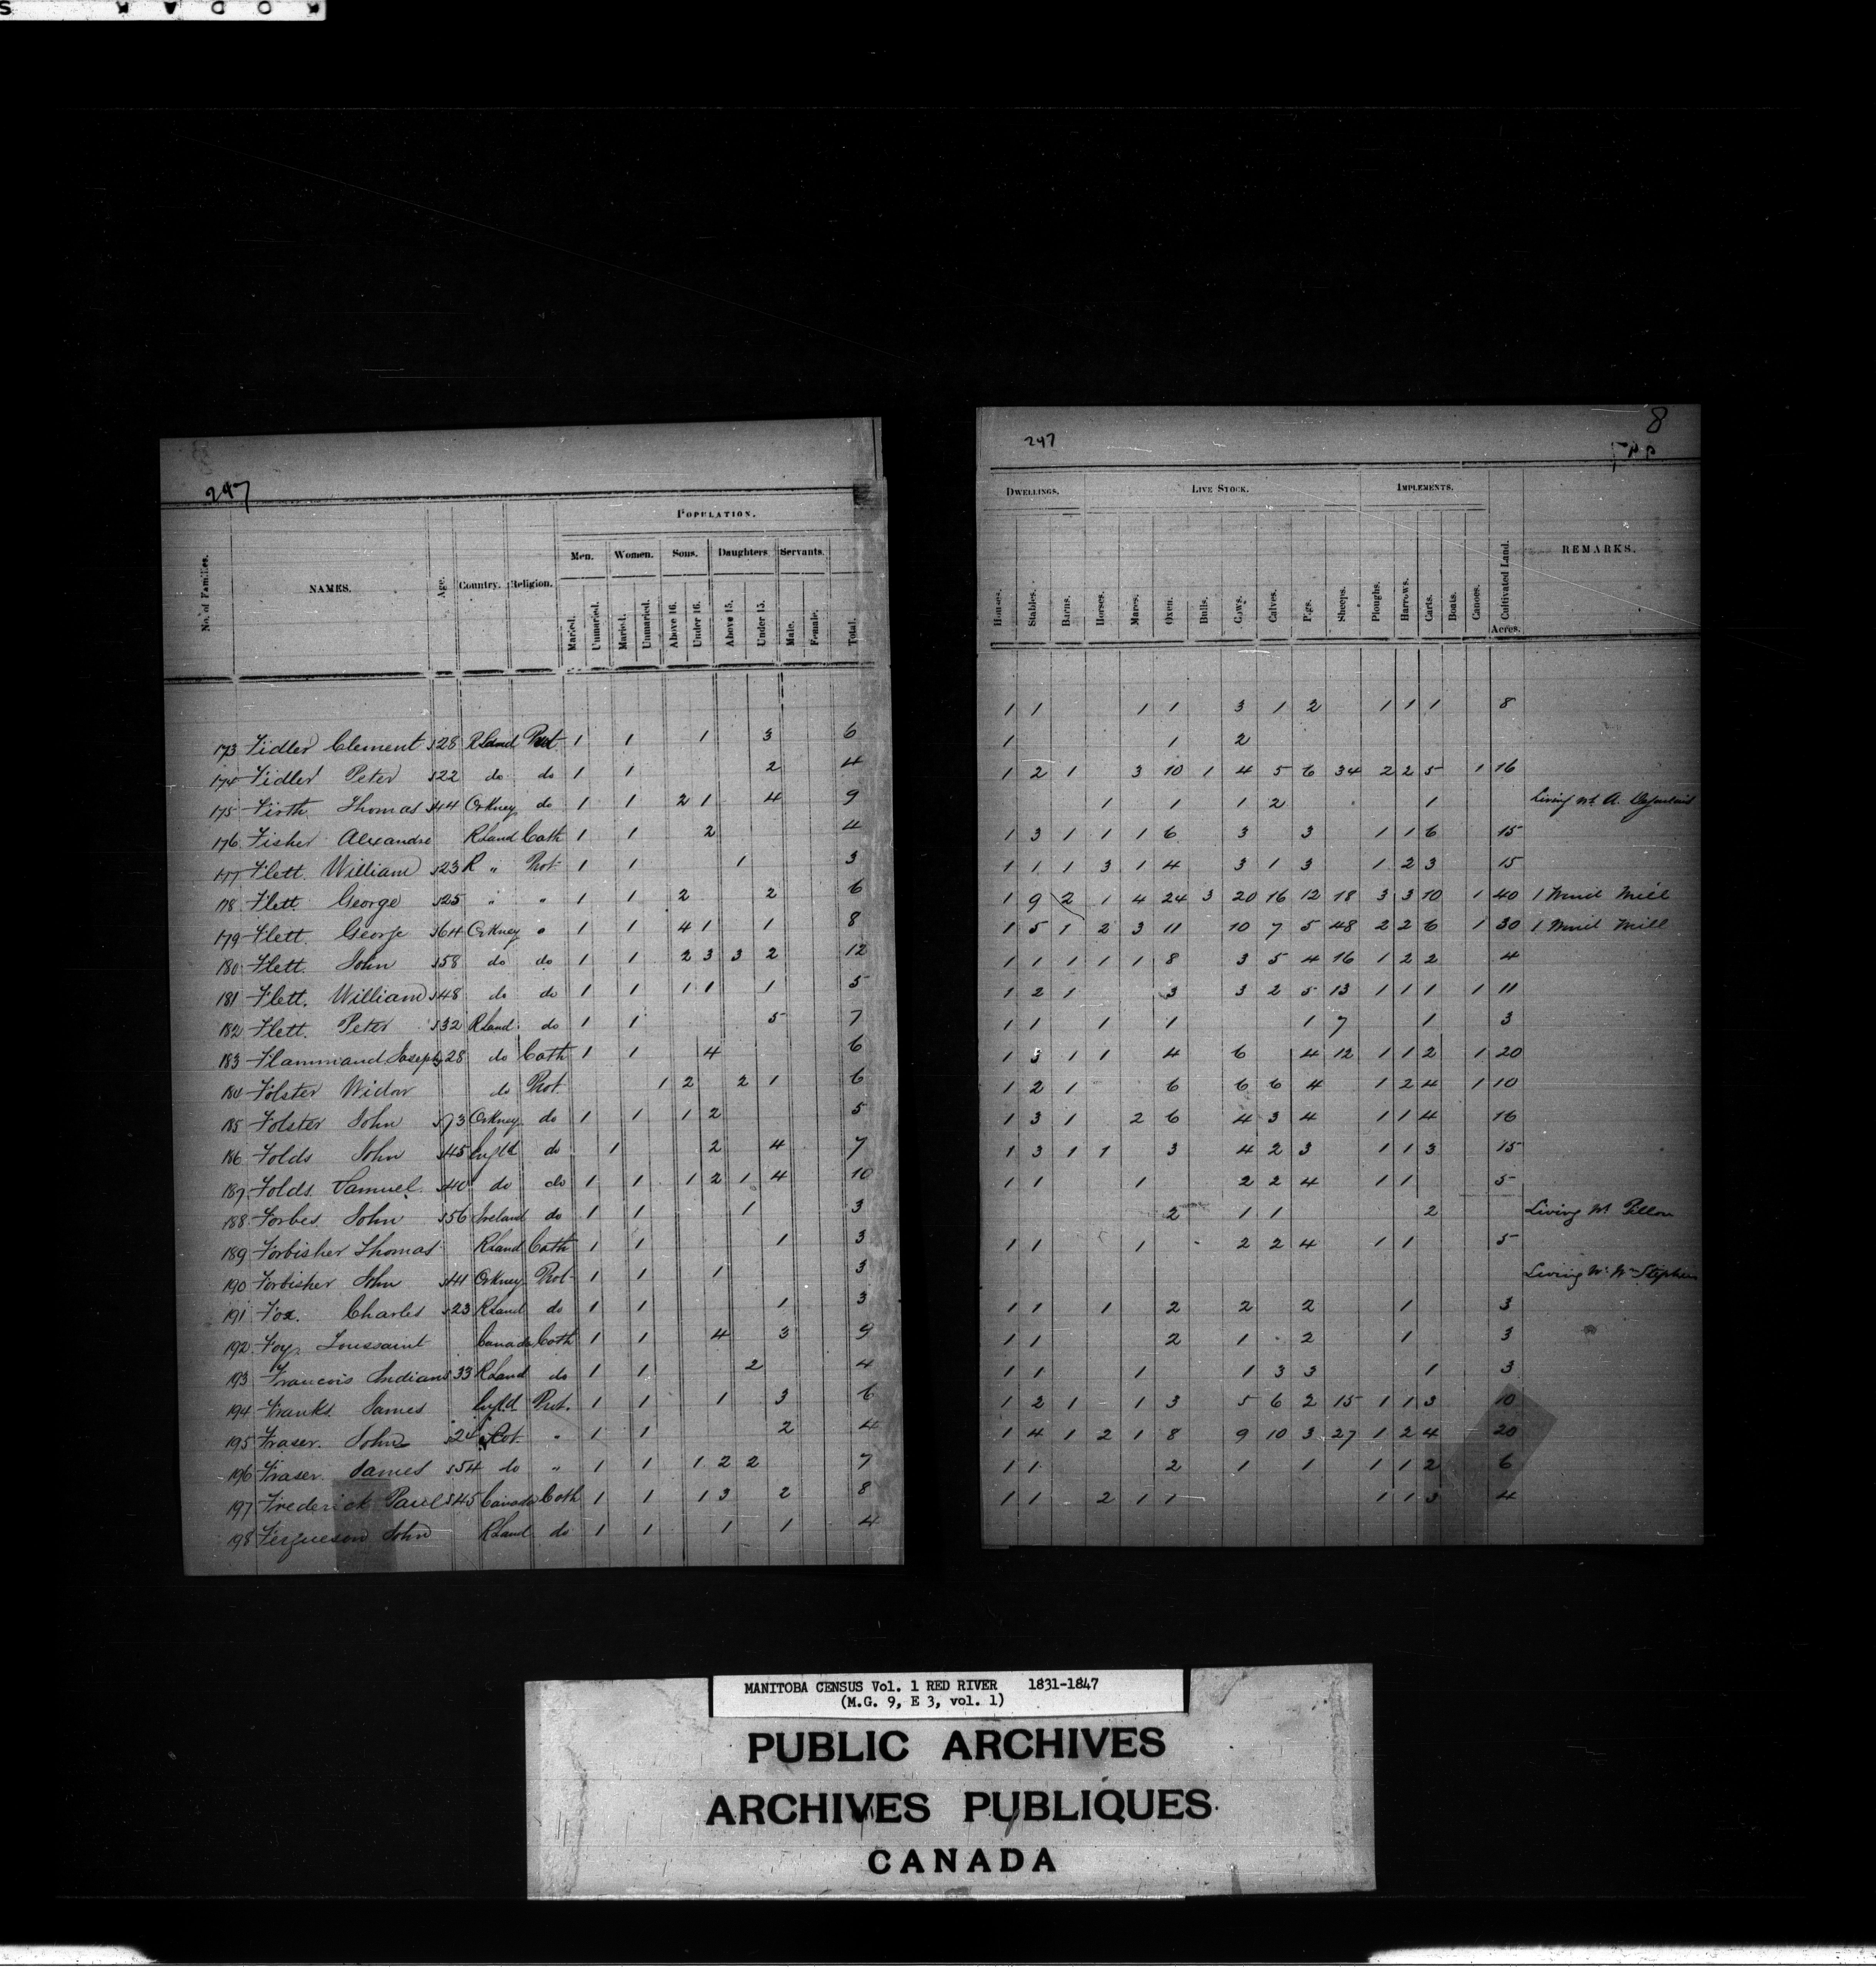 KODAK S
247
No. of Families. NAMES. Age. Country. Religion. POPULATION.
Men. Women. Sons. Daughters Servants.
Maried. Unmaried. Maried. Unmaried. Above 16. Under 16. Above 15. Under 15. Male. Female. Total.
173 Fidler Clement 28 R Land Prot 1 1 1 3 6
174 Fidler Peter 22 do do 1 1 2 4
175 Firth Thomas 44 Orkney do 1 1 2 1 4 9
176 Fisher Alexandre R Land Cath 1 1 2 4
177 Flett. William 23 R „ Prot 1 1 1 3
178 Flett George 25 " " 1 1 2 2 6
179 Flett. George 64 Orkney " 1 1 4 1 1 8
180 Flett. John 58 do do 1 1 2 3 3 2 12
181 Flett. William 48 do do 1 1 1 1 1 5
182 Flett. Peter 32 R Land do 1 1 5 7
183 Flammand Joseph 28 do Cath 1 1 4 6
184 Folster Widow do Prot 1 2 2 1 6
185 Folster John 73 Orkney do 1 1 1 2 5
186 Folds John 45 Engld do 1 2 4 7
187 Folds Samuel 40 do do 1 1 1 2 1 4 10
188 Forbes. John 56 Ireland do 1 1 1 3
189 Forbisher Thomas R Land Cath 1 1 1 3
190 Forbisher John 41 Orkney Prot 1 1 1 3
191 Fox. Charles 23 R Land do 1 1 1 3
192 Foy. Toussaint Canada Cath 1 1 4 3 9
193 Francois Indian 33 R Land do 1 1 2 4
194 Franks James Engld Prot. 1 1 1 3 6
195 Fraser. John 24 " 1 1 2 4
196 Fraser. James 54 do " 1 1 1 2 2 7
197 Frederick Paul 45 Canada Cath 1 1 1 3 2 8
198 Fergueson John R Land do 1 1 1 1 4
8
247
DWELLINGS. LIVE STOCK. IMPLEMENTS. Cultivated Land. REMARKS.
Houses. Stables. Barns. Horses. Mares. Oxen. Bulls. Cows. Calves. Pigs. Sheeps. Ploughs. Harrows. Carts. Boats. Canoes. Acres.
1 1 1 1 3 1 2 1 1 1 8
1 1 2
1 2 1 3 10 1 4 5 6 34 2 2 5 1 16
1 1 1 2 1 Living wt A.
1 3 1 1 1 6 3 3 1 1 6 15
1 1 1 3 1 4 3 1 3 1 2 3 15
1 9 2 1 4 24 3 20 16 12 18 3 3 10 1 40 1 Wind Mill
1 5 1 2 3 11 10 7 5 48 2 2 6 1 30 1 Wind Mill
1 1 1 1 1 8 3 5 4 16 1 2 2 4
1 2 1 3 3 2 5 13 1 1 1 1 11
1 1 1 1 1 7 1 3
1 3 1 1 4 6 4 12 1 1 2 1 20
1 2 1 6 6 6 4 1 2 4 1 10
1 3 1 2 6 4 3 4 1 1 4 16
1 3 1 1 3 4 2 3 1 1 3 15
1 1 1 2 2 4 1 1 5
2 1 1 2 Living wt Pillon
1 1 1 2 2 4 1 1 5
Living wt Wm Stephen
1 1 1 2 2 2 1 3
1 1 2 1 2 1 3
1 1 1 1 3 3 1 3
1 2 1 1 3 5 6 2 15 1 1 3 10
1 4 1 2 1 8 9 10 3 27 1 2 4 20
1 1 2 1 1 1 1 2 6
1 1 2 1 1 1 1 3 4
MANITOBA CENSUS Vol. 1 RED RIVER 1831-1847
(M.G. 9, E 3, vol. 1)
PUBLIC ARCHIVES
ARCHIVES PUBLIQUES
CANADA